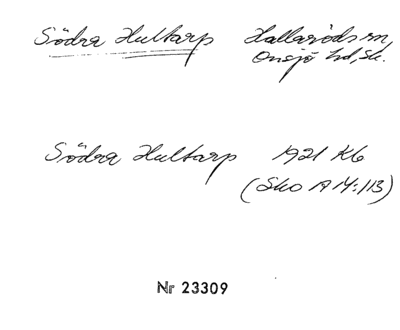 Södra Hultarp Hallaröds sn,
Onsjö hd, Sk.
Södra Hultarp 1921 Kb
(Sko A 14:113)
Nr 23309